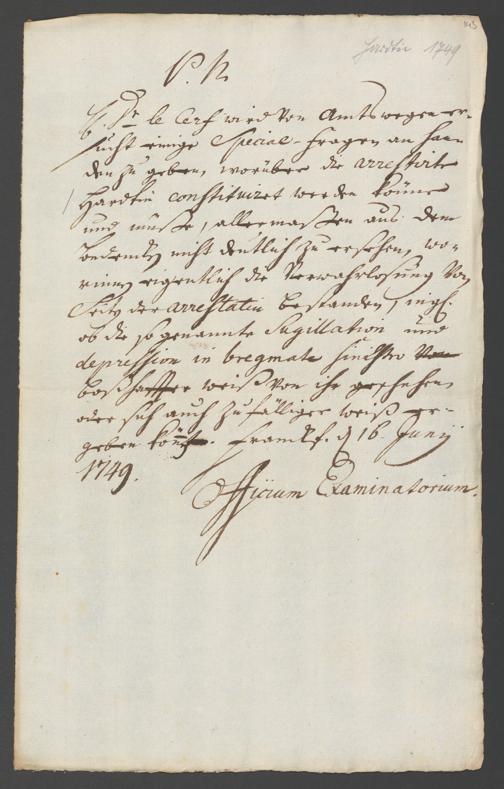 143
Hardtin 1749
P. N.
H. Dr. le Cerf wird von Amts wegen er-
sucht einige Special-Fragen an Han-
den zu geben, worüber die arrestirte
Hardtin constituiret werden könne
und müße, allermaßen aus dem
Bedencken nicht deutlich zu ersehen, wo-
rinnen eigentlich die Verwahrlosung von
Seiten der arrestatin bestanden, ingl.
ob die sogenannte Sugillation und
depression in bregmate sinistro
boßhaffter weiß von ihr geschehen
oder sich auch zufälliger weiß er-
geben könt. Franckf. d 16. Junij
1749.
Officium Examinatorium.